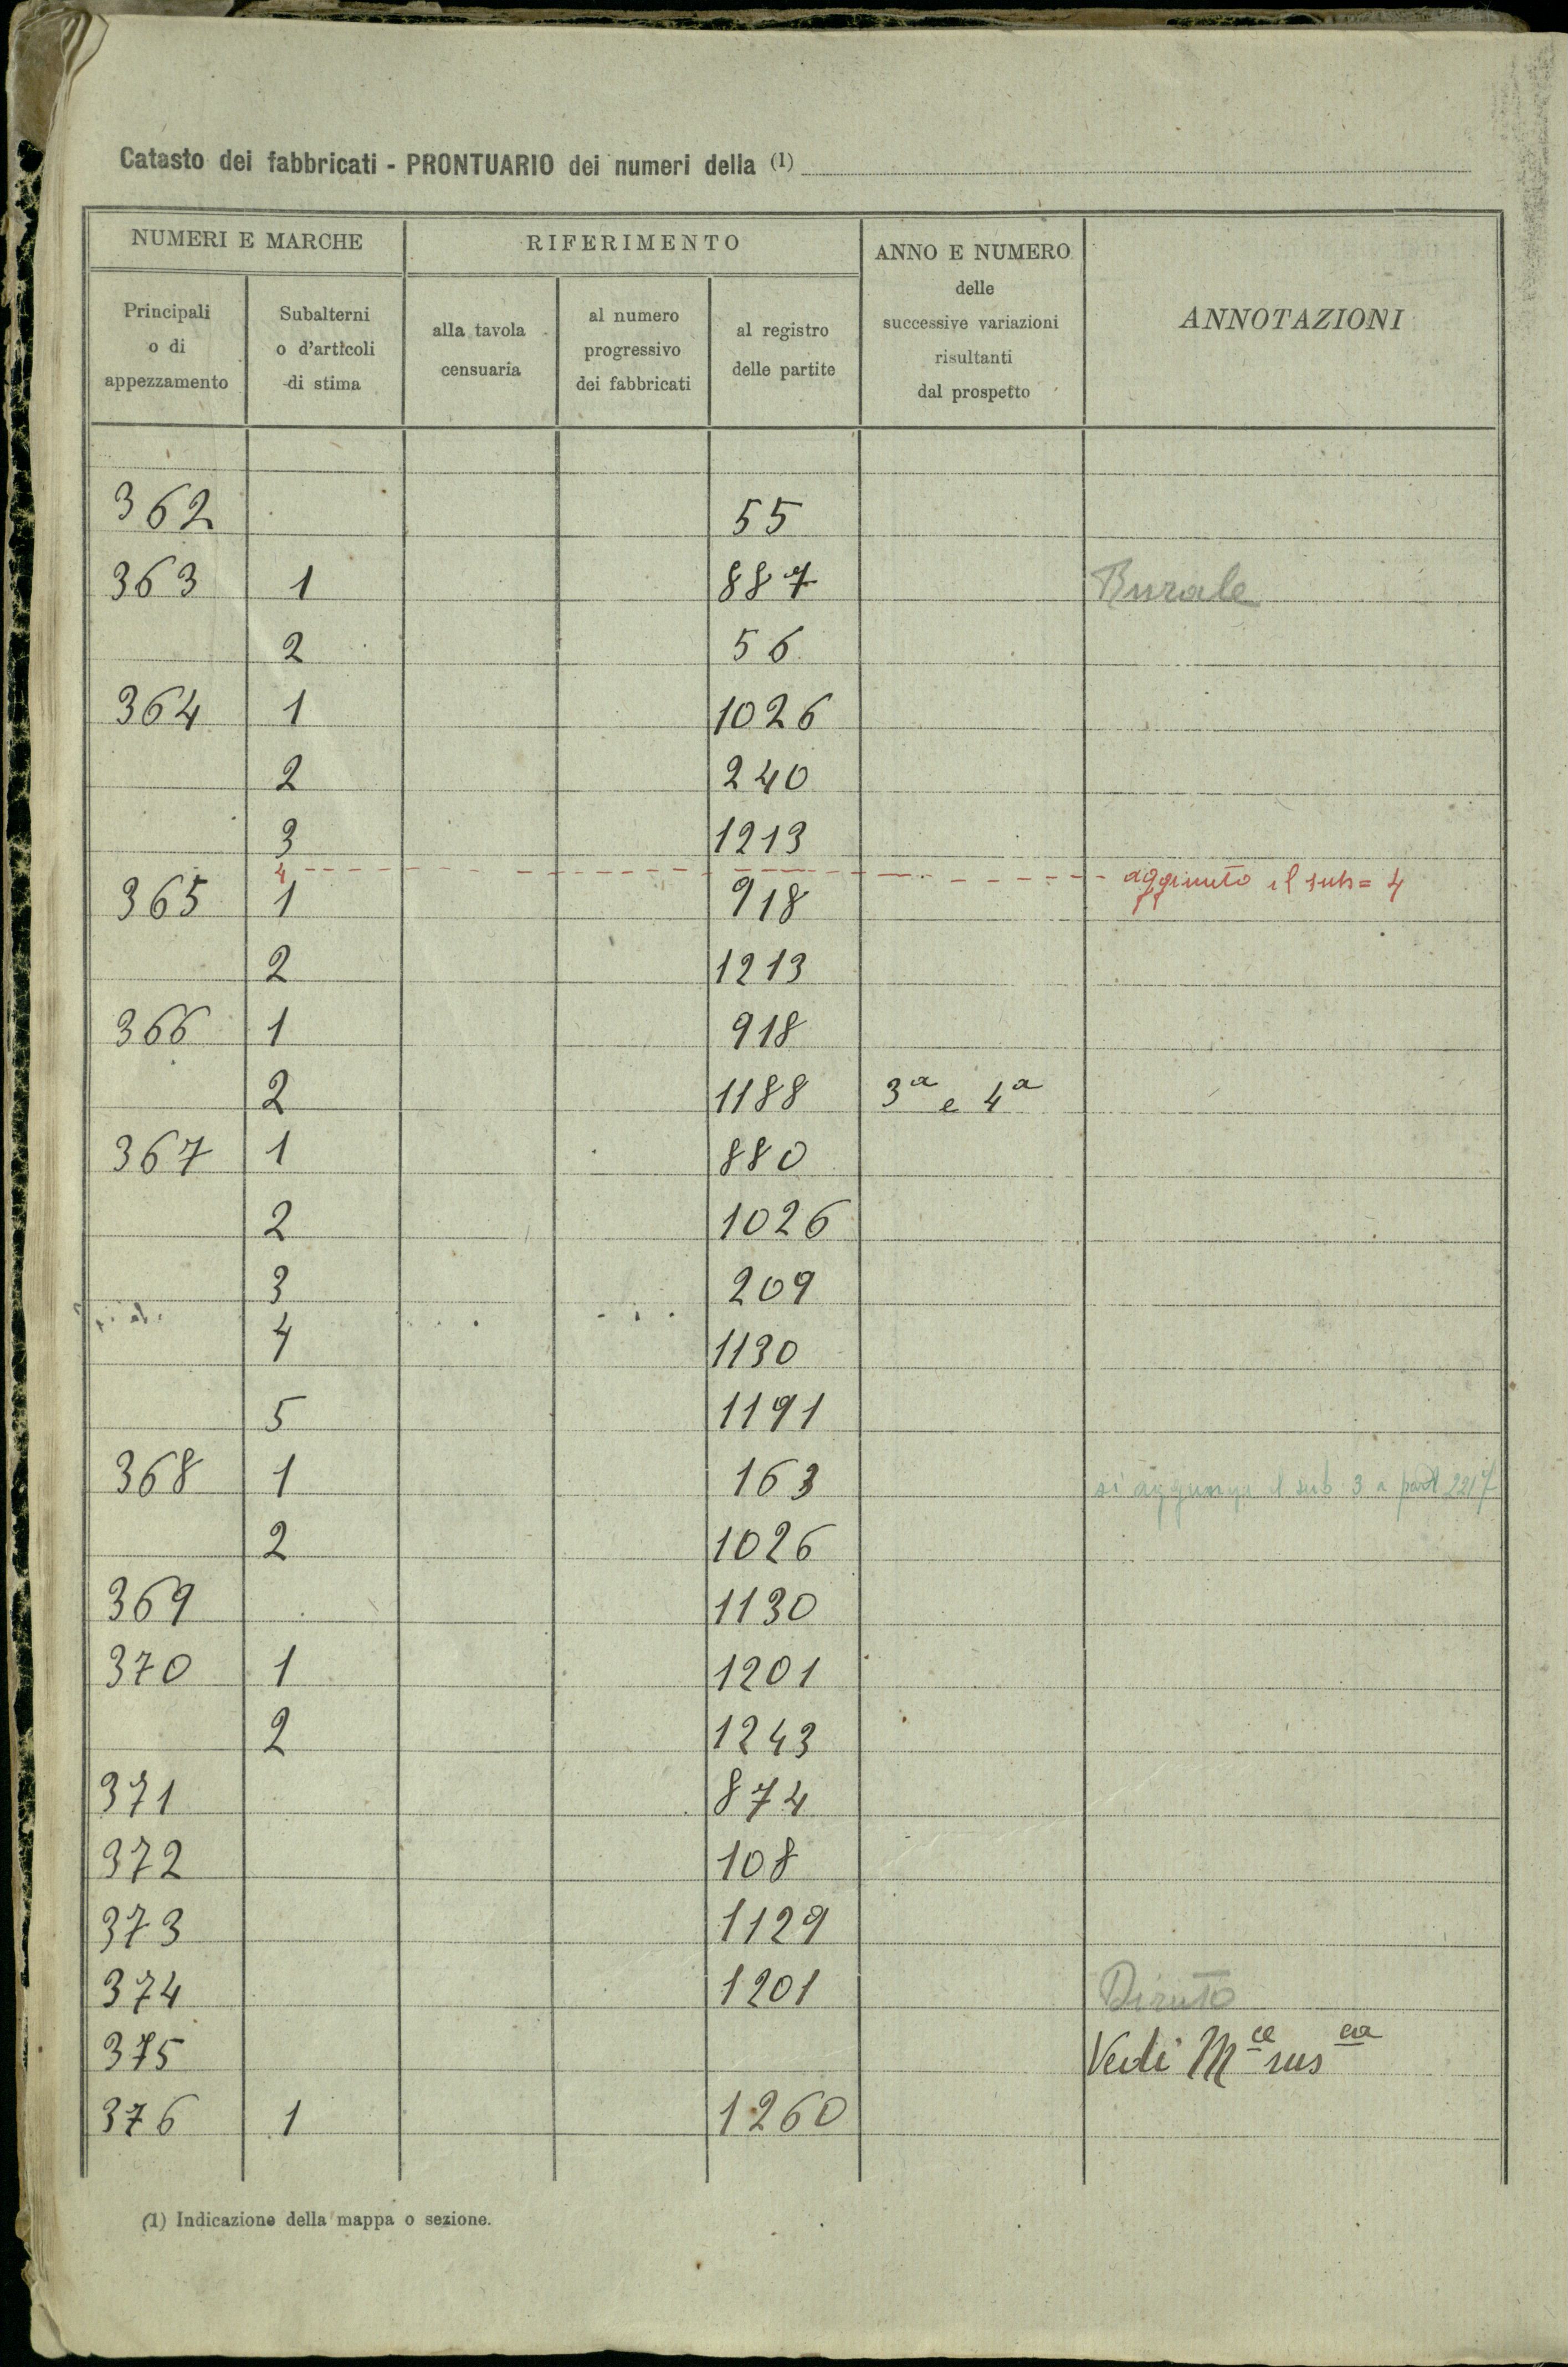 Catasto dei fabbricati - PRONTUARIO dei numeri della (1)
NUMERI E MARCHE
RIFERIMENTO
ANNO E NUMERO
delle
successive variazioni
risultanti
dal prospetto
ANNOTAZIONI
Principali
o di
appezzamento
Subalterni
o d'articoli
di stima
alla tavola
censuaria
al numero
progressivo
dei fabbricati
al registro
delle partite
362 55
363 1 887 Rurale
2 56
364 1 1026
2 240
3 1213
4 aggiunto il sub = 4
365 1 918
2 1213
366 1 918
2 1188 3ª e 4ª
367 1 880
2 1026
3 209
4 1130
5 1191
368 1 163 si aggiunga il sub 3 a part 2217
2 1026
369 1130
370 1 1201
2 1243
371 874
372 108
373 1129
374 1201 Diruto
375 Vedi
376 1 1260
(1) Indicazione della mappa o sezione.